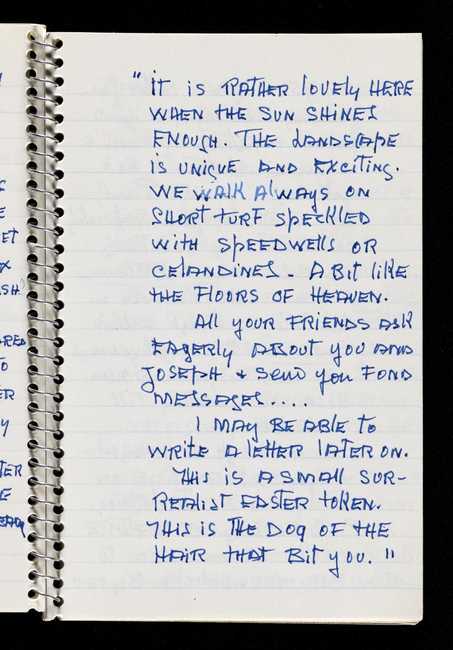 "IT IS RATHER lovely HERE
WHEN THE SUN SHINES
ENOUGH. THE LANDSCAPE
IS UNIQUE AND EXCITING.
WE WALK ALWAYS ON
SHORT TURF SPECKLED
WITH SPEEDWELLS OR
CELANDINES - A BIT LIKE
THE FLOORS OF HEAVEN.
All your FRIENDS ASK
EAGERLY ABOUT YOU AND
JOSEPH & SEND you FOND
MESSAGES....
I MAY BE ABLE TO
WRITE A LETTER LATER ON.
THIS IS A SMALL SUR-
REALIST EASTER TOKEN.
THIS IS THE DOG OF THE
HAIR THAT BIT YOU."